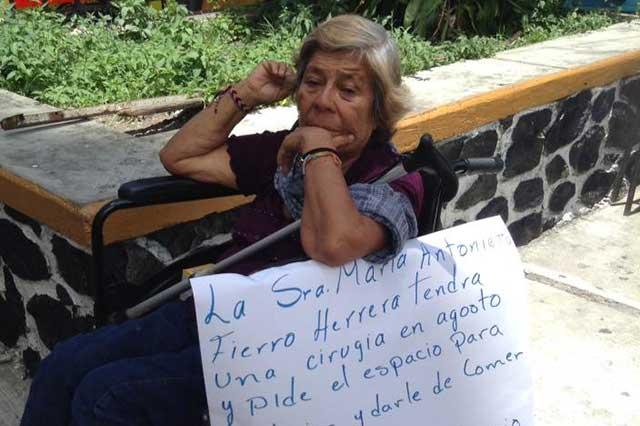 La Sra. María Antonieta
Fierro Herrera tendra
una cirugia en agosto
y pide el espacio para
y darle de comer